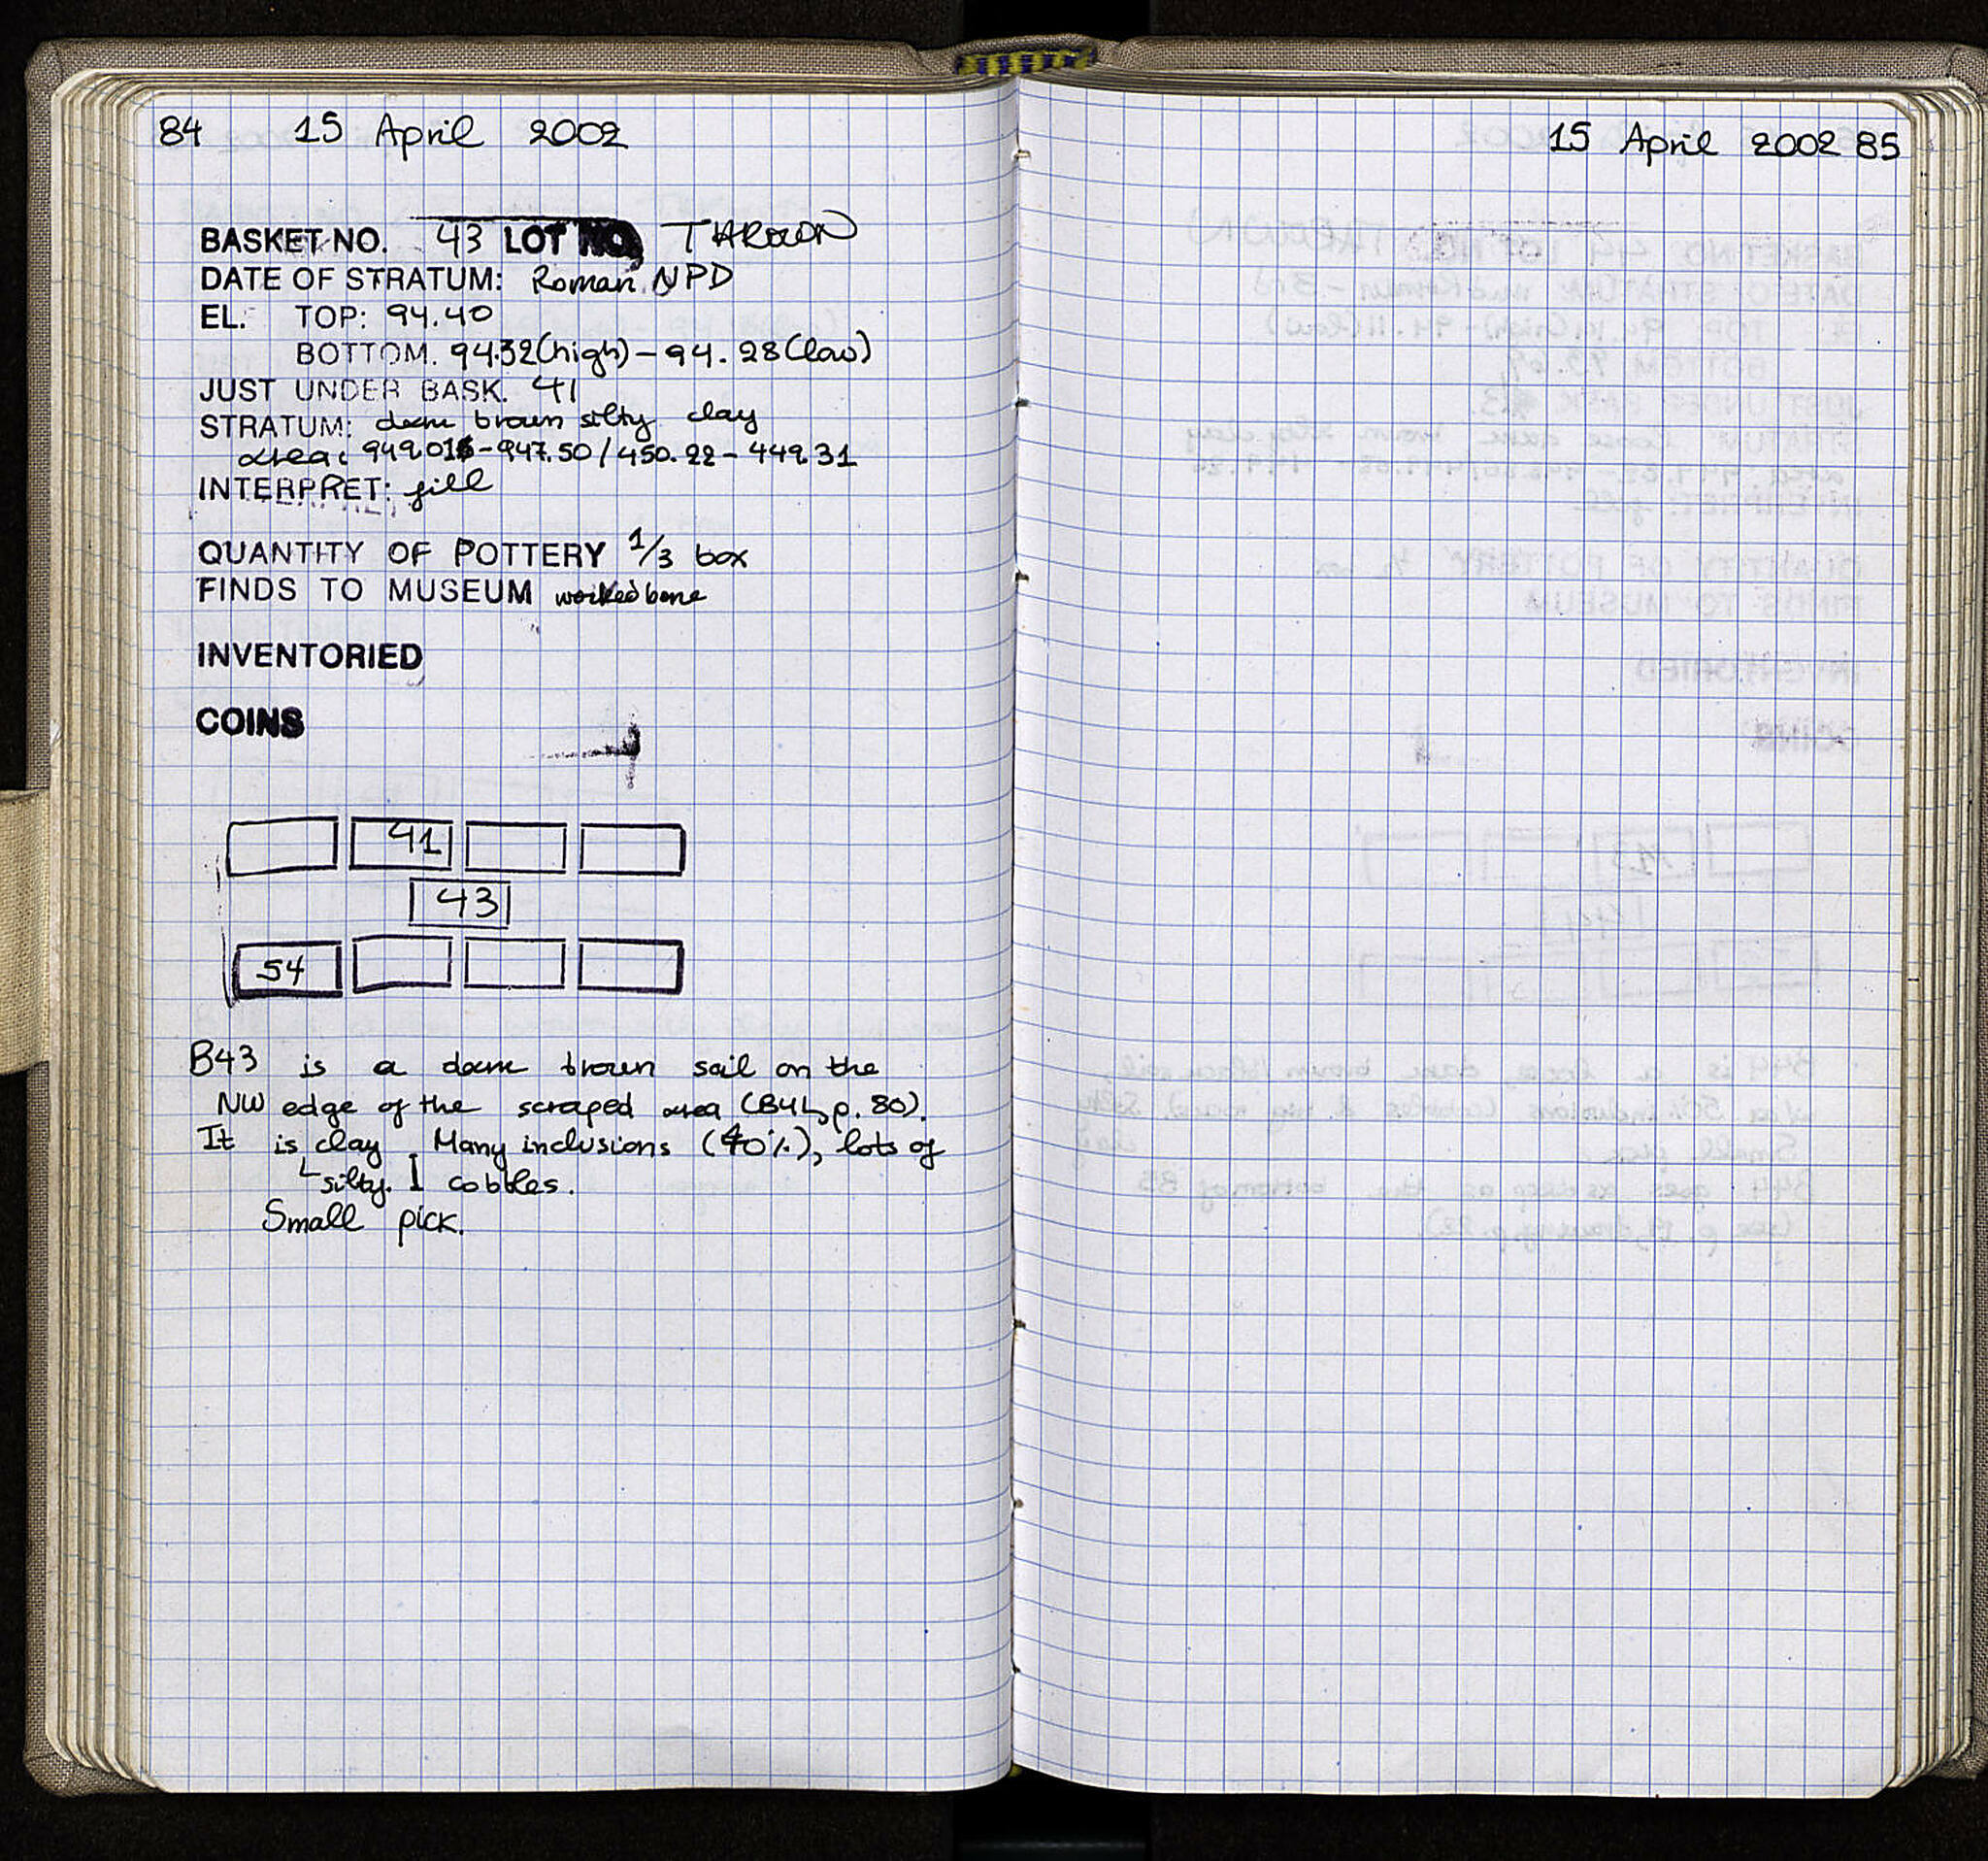 84 15 April 2002
BASKET NO. 43 LOT NO. THROWN
DATE OF STRATUM: Roman NPD
EL. TOP: 94.40
BOTTOM. 94.32(high) - 94.28(low)
JUST UNDER BASK. 41
STRATUM: brown silty clay
area: 949.01 - 947.50 / 450.22 - 449.31
INTERPRET: fill
QUANTITY OF POTTERY 1/3 box
FINDS TO MUSEUM worked bone
INVENTORIED
COINS
41
43
54
B43 is a brown soil on the
NW edge of the scraped area (B41, p. 80).
It is clay. Many inclusions (40%), lots of
silty. cobbles.
Small pick.
15 April 2002 85